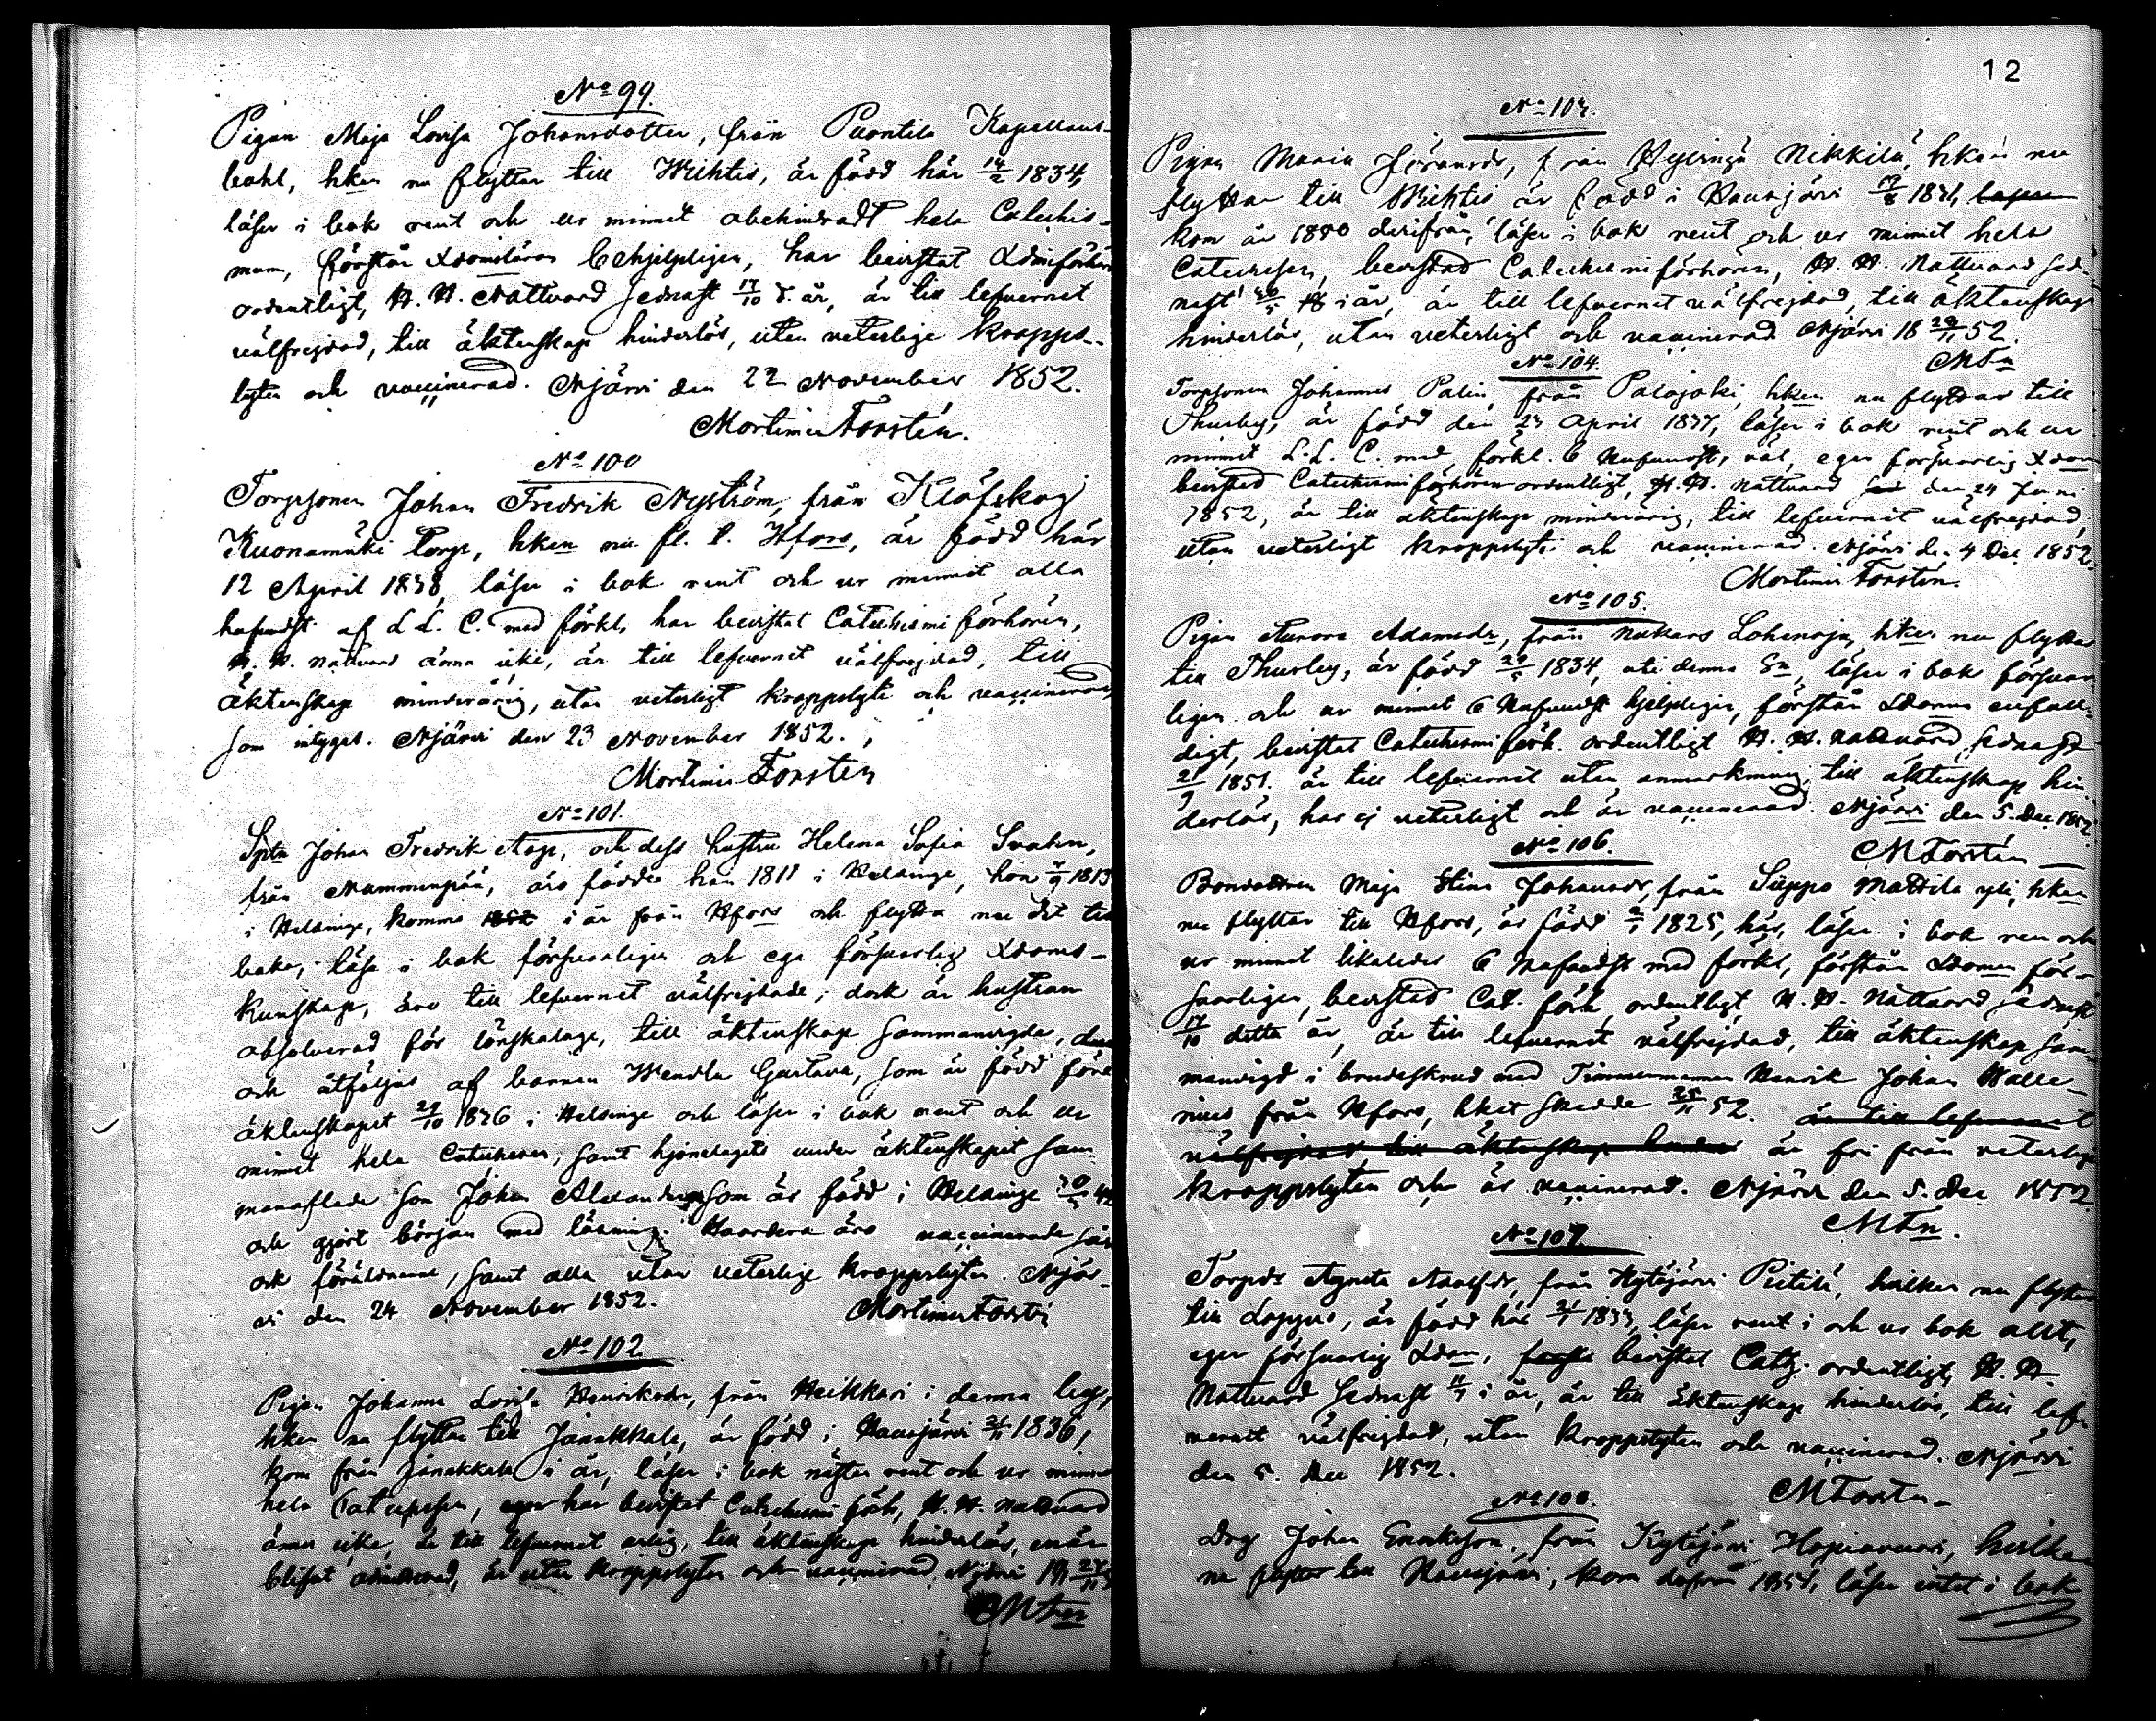 No 99.
Pigan Maja Lovisa Johansdotter, från Puontila Kapellans-
bohl, hken nu flyttar till Wichtis, är född här 14/2 1834,
läser i bok rent och ur minnet obehindradt hela Catechis-
mum, förstår Xdomsläran behjelpligen, har beivistat Xdmiförhören
ordentligt, H. H. Nattvard sednast 17/10 d. år, är till lefvernet
välfrejdad, till äktenskap hinderlös, utan veterlige kropps-
lyten och vaccinerad. Njärvi den 22 November 1852.
Mortimer Forstén.
No 100
Torpsonen Johan Fredrik Nyström, från Klöfskog
Kuonamäki Torp, hken nu fl. t. Hfors, är född här
12 April 1838, läser i bok rent och ur minnet alla
hufvudst. af L. L. C. med förkl, har beivistat Catechismi förhören,
H. H. Nattvard ännu icke, är till lefvernet välfrejdad, till
äktenskap minderårig, utan veterligt kroppslyte och vaccinerad,
som intygas. Njärvi den 23 November 1852.
Mortimer Forstén
No 101.
Johan Fredrik Aap, och dess hustru Helena Sofia Svahn,
från Nummenpää, äro födde han 1811 i Helsinge, hon 1813
i Helsinge, komma 1852 i år från Hfors och flytta nu dit till
baka, läsa i bok försvarligen och ega försvarlig Xdoms-
kunskap, äro till lefvernet välfrejdade; dock är hustrun
absolverad för lönskaläge, till äktenskap sammanvigda,
och åtföljas af barnen Wendla Gustava, som är född före
äktenskapet 29/10 1836 i Helsinge och läser i bok rent och ur
minnet hela Catechesen, samt hjonelagets under äktenskapet sam-
manaflade son Johan Alexander som är född i Helsinge
och gjort början med läsning. Hvardera äro vaccinerade så
ock föräldrarne, samt alla utan veterlige kroppslyten. Njär-
vi den 24 November 1852. Mortimer Forstén
No 102
Pigan Johanna Lovisa Henriksdr, från Heikkari i denna by,
hken nu flyttar till Janakkala, är född i Hausjärvi 1836,
kom från Janakkala i år, läser i bok nästan rent och ur minnet
hela Catechesen, eger har beivistat Catechismi förh, H. H. Nattvard
ännu icke, är till lefvernet ärlig, till äktenskap hinderlös,
blifvit admitterad, är utan kroppslyten och vaccinerad. Njärvi
MFn
12
No 103.
Pigan Maria Göransdr, från Hyvinge Nikkilä, hken nu
flyttar till Wichtis är född i Hausjärvi 1831, läser
kom år 1850 derifrån, läser i bok rent och ur minnet hela
Catechesen, beivistad Catechismiförhören, H. H. Nattvard sed-
nast i år, är till lefvernet välfrejdad, till äktenskap
hinderlös, utan veterligt och vaccinerad. Njärvi 18 28/11 52.
MFn
No 104.
Torpsonen Johannes Palin, från Palojoki, hken nu flyttar till
Thusby, är född den 23 April 1837, läser i bok rent och ur
minnet L. L. C. med förkl. 6 Hufvudst, väl, eger försvarlig Xdom
beivistad Catechismiförhören ordentligt, H. H. Nattvard den 24 Juni
1852, är till äktenskap minderårig, till lefvernet välfrejdad,
utan veterligt kroppslyte och vaccinerad. Njärvi den 4 Dec 1852.
Mortimer Forstén.
No 105.
Pigan Aurora Adamsdr, från Nukars Lohenoja, hken nu flyttar
till Thusby, är född 29/5 1834, uti denna Sn, läser i bok försvar
ligen och ur minnet 6 Hufvudst hjelpligen, förstår Xdomen enfal-
digt, beivistat Catechismi förh. ordentligt H. H. Nattvard sednast
21/9 1851. är till lefvernet utan anmärkning, till äktenskap hin-
derlös, har ej veterligt och är vaccinerad. Njärvi den 5. Dec. 1852
MForstén
No 106.
Bondedottren Maja Stina Johansdr, från Seppo Mattila yli, hken
nu flyttar till Hfors, är född 1825, här, läser i bok ren och
ur minnet likaledes 6 Hufvudst med förkl, förstår Xdomen för-
svarligen, beivistad Cat. förh, ordentligt, H. H. Nattvard sednast
17/10 detta år, är till lefvernet välfrejdad, till äktenskap sam-
manvigd i brudeskrud med Timmermannen Henrik Johan Walle-
nius från Hfors, hket skedde 25/11 52. är till lefvernet
välfrejdad till äktenskap hinder är fri från veterlige
kroppslyten och är vaccinerad. Njärvi den 5. Dec 1852.
MFn.
No 107
Torpdr Agneta Adolfsdr, från Kytäjärvi Pietilä, hvilken nu flyttar
till Loppis, är född här 1833, läser rent i och ur bok allt,
eger försvarlig Xdom, beivistat Cat. ordentligt, H. H.
Nattvard sednast i år, är till äktenskap hinderlös, till lef-
vernet välfrejdad, utan kroppslyten och vaccinerad. Njärvi
den 5. Dec 1852.
MForstén
No 108.
Drg Johan Eriksson, från Kytäjärvi Hopiavuori, hvilken
nu flyttar till Hausjärvi, kom derfrån 1851, läser intet i bok